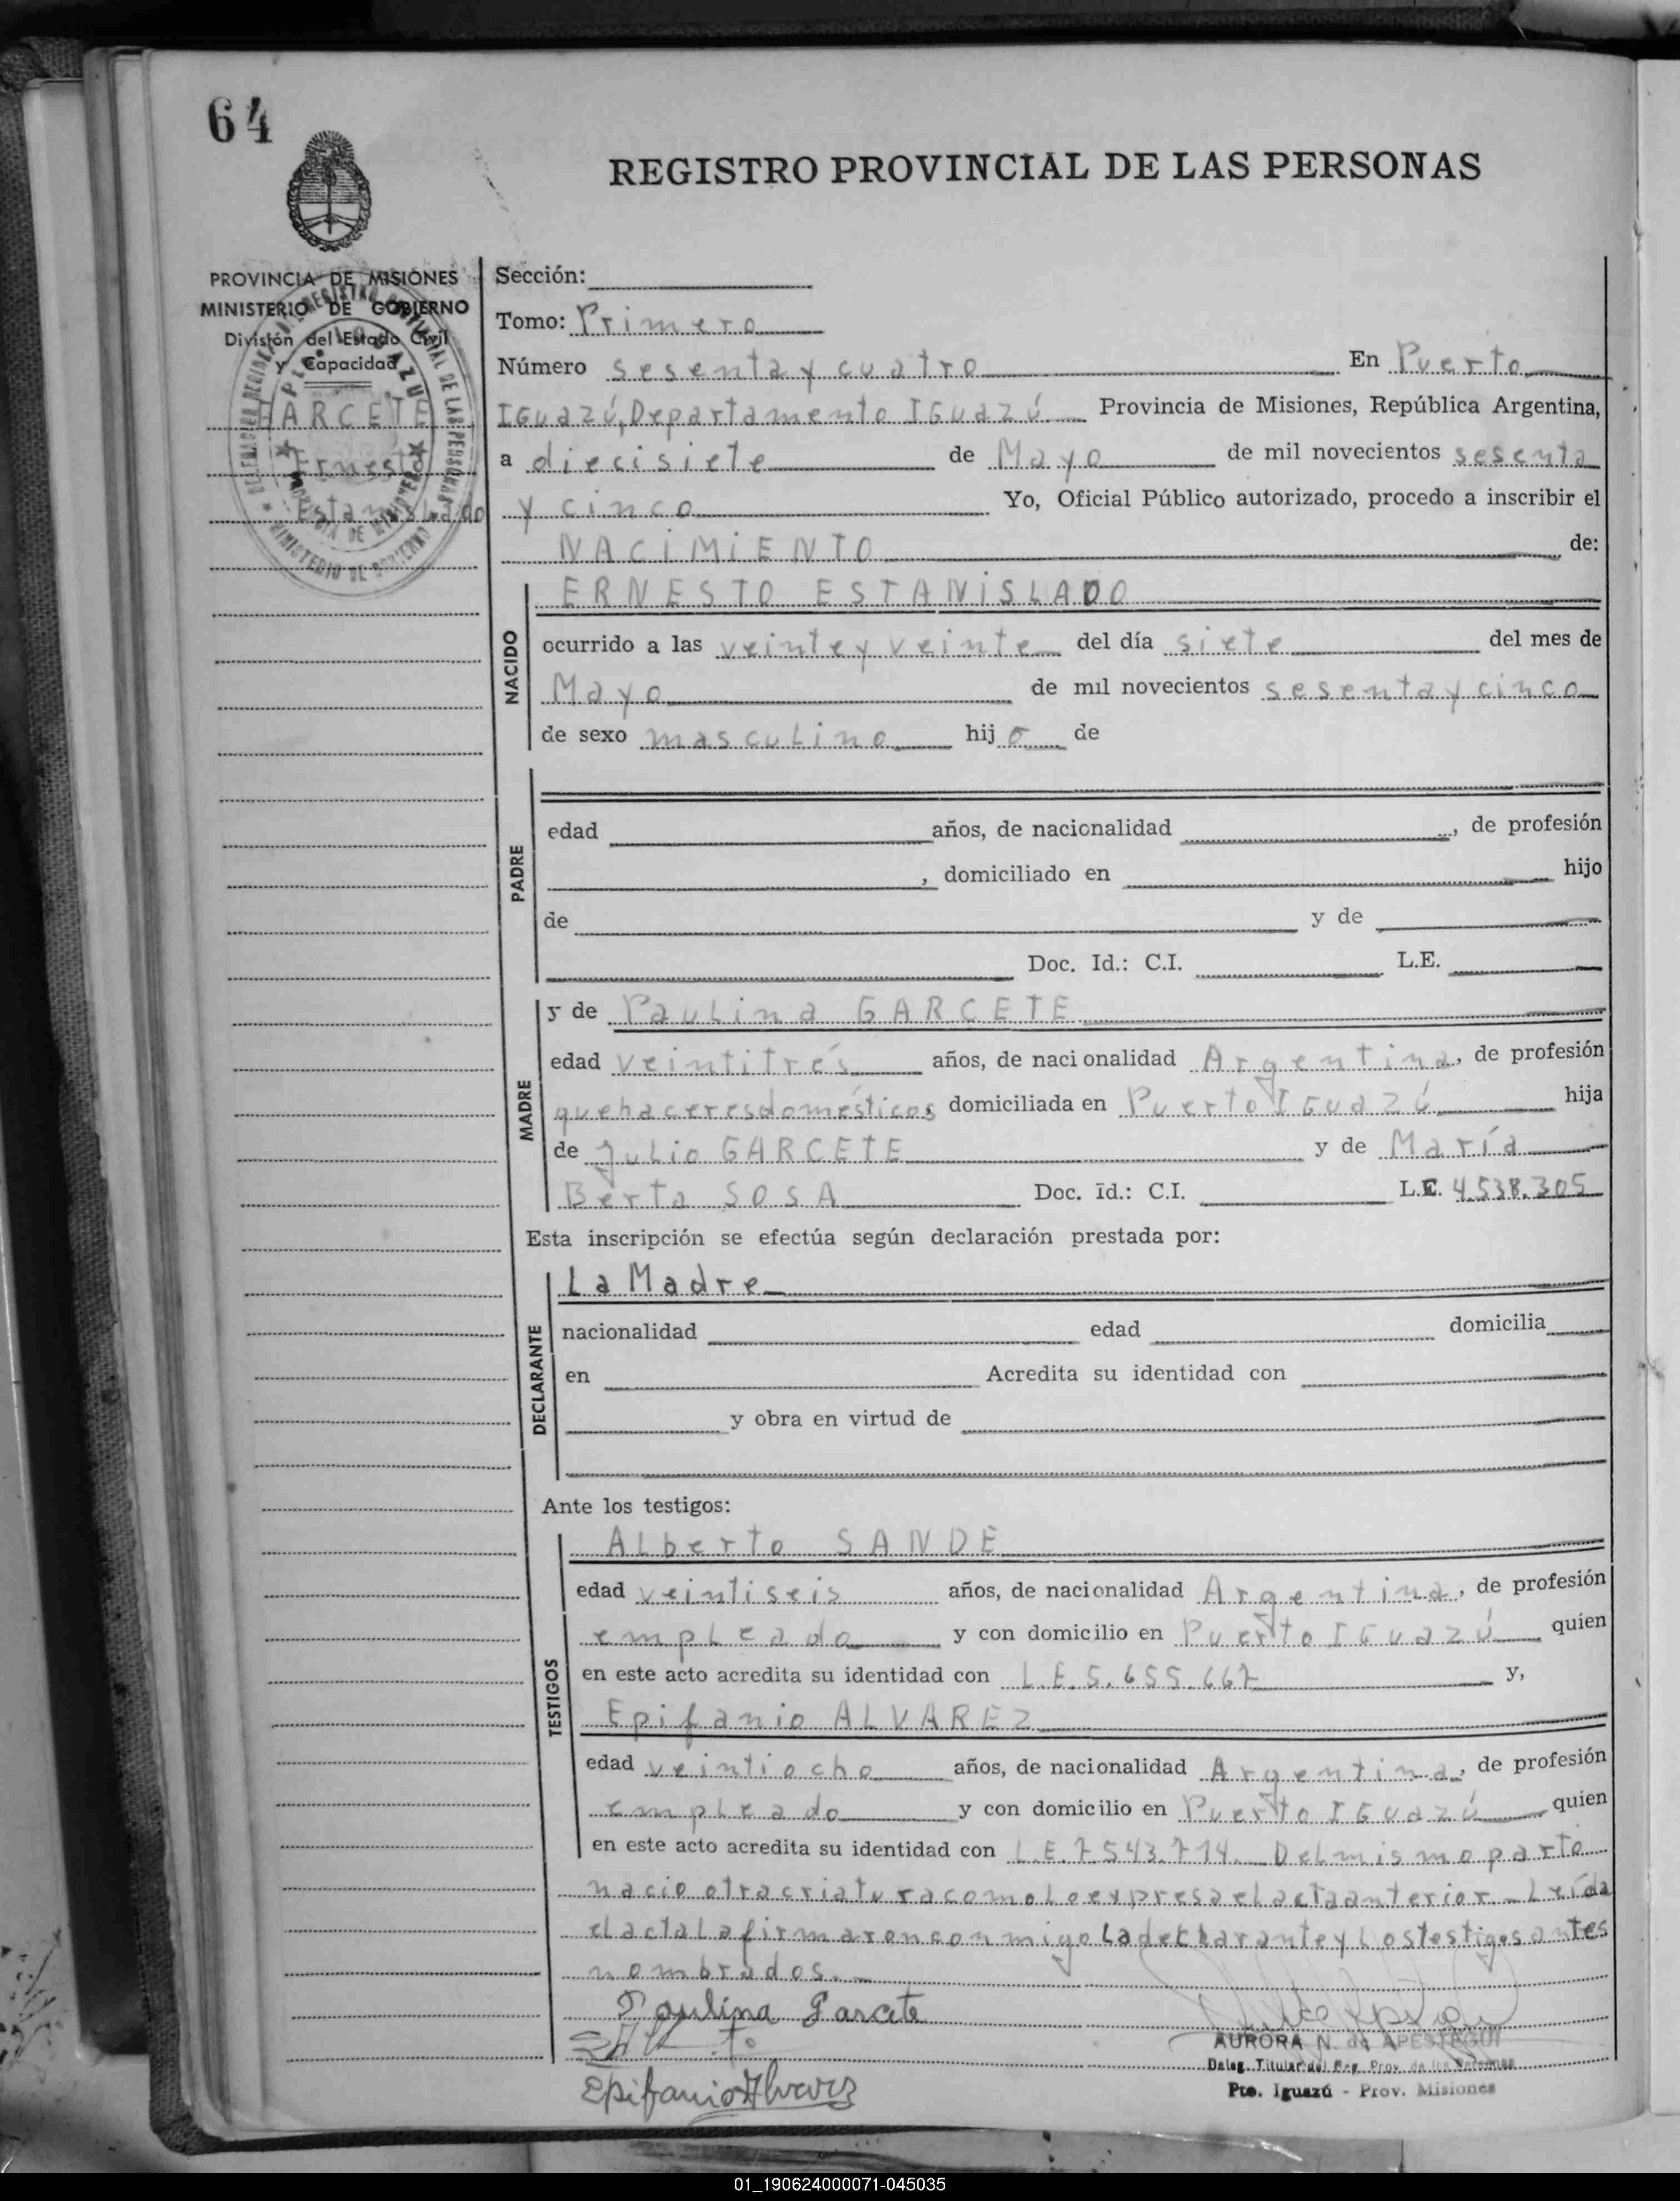 64
REGISTRO PROVINCIAL DE LAS PERSONAS
PROVINCIA DE MISIONES
MINISTERIO DE GOBIERNO
División del Estado Civil
y Capacidad
GARCETE
Ernesto
Estanislado
Sección:
Tomo: Primero
Número sesenta y cuatro En Puerto
IGuazú, Departamento IGuazú Provincia de Misiones, República Argentina,
a diecisiete de Mayo de mil novecientos sesenta
y cinco Yo, Oficial Público autorizado, procedo a inscribir el
NACIMIENTO de:
NACIDO
ERNESTO ESTANISLADO
ocurrido a las veinte y veinte del día siete del mes de
Mayo de mil novecientos sesenta y cinco
de sexo masculino hijo de
PADRE
edad años, de nacionalidad , de profesión
, domiciliado en hijo
de y de
Doc. Id.: C.I. L.E.
MADRE
y de Paulina GARCETE
edad veintitrés años, de nacionalidad Argentina, de profesión
quehaceres domésticos, domiciliada en Puerto IGuazú hija
de Julio GARCETE y de María
Berta SOSA Doc. Id.: C.I. L.E. 4.538.305
Esta inscripción se efectúa según declaración prestada por:
DECLARANTE
La Madre
nacionalidad edad domicilia
en Acredita su identidad con
y obra en virtud de
Ante los testigos:
TESTIGOS
Alberto SANDE
edad veintiseis años, de nacionalidad Argentina, de profesión
empleado y con domicilio en Puerto IGuazú quien
en este acto acredita su identidad con L.E. 5.655.667 y,
Epifanio ALVAREZ
edad veintiocho años, de nacionalidad Argentina, de profesión
empleado y con domicilio en Puerto IGuazú quien
en este acto acredita su identidad con L.E. 7543.714. Del mismo parto
nacio otra criatura como lo expresa el acta anterior. Leída
el acta la firmaron conmigo la declarante y los testigos antes
nombrados.
Paulina Garcete
Epifanio Alvarez
AURORA N. de APESTEGUI
Deleg. Titular del Reg. Prov. de las Personas
Pto. Iguazú - Prov. Misiones
01_190624000071-045035